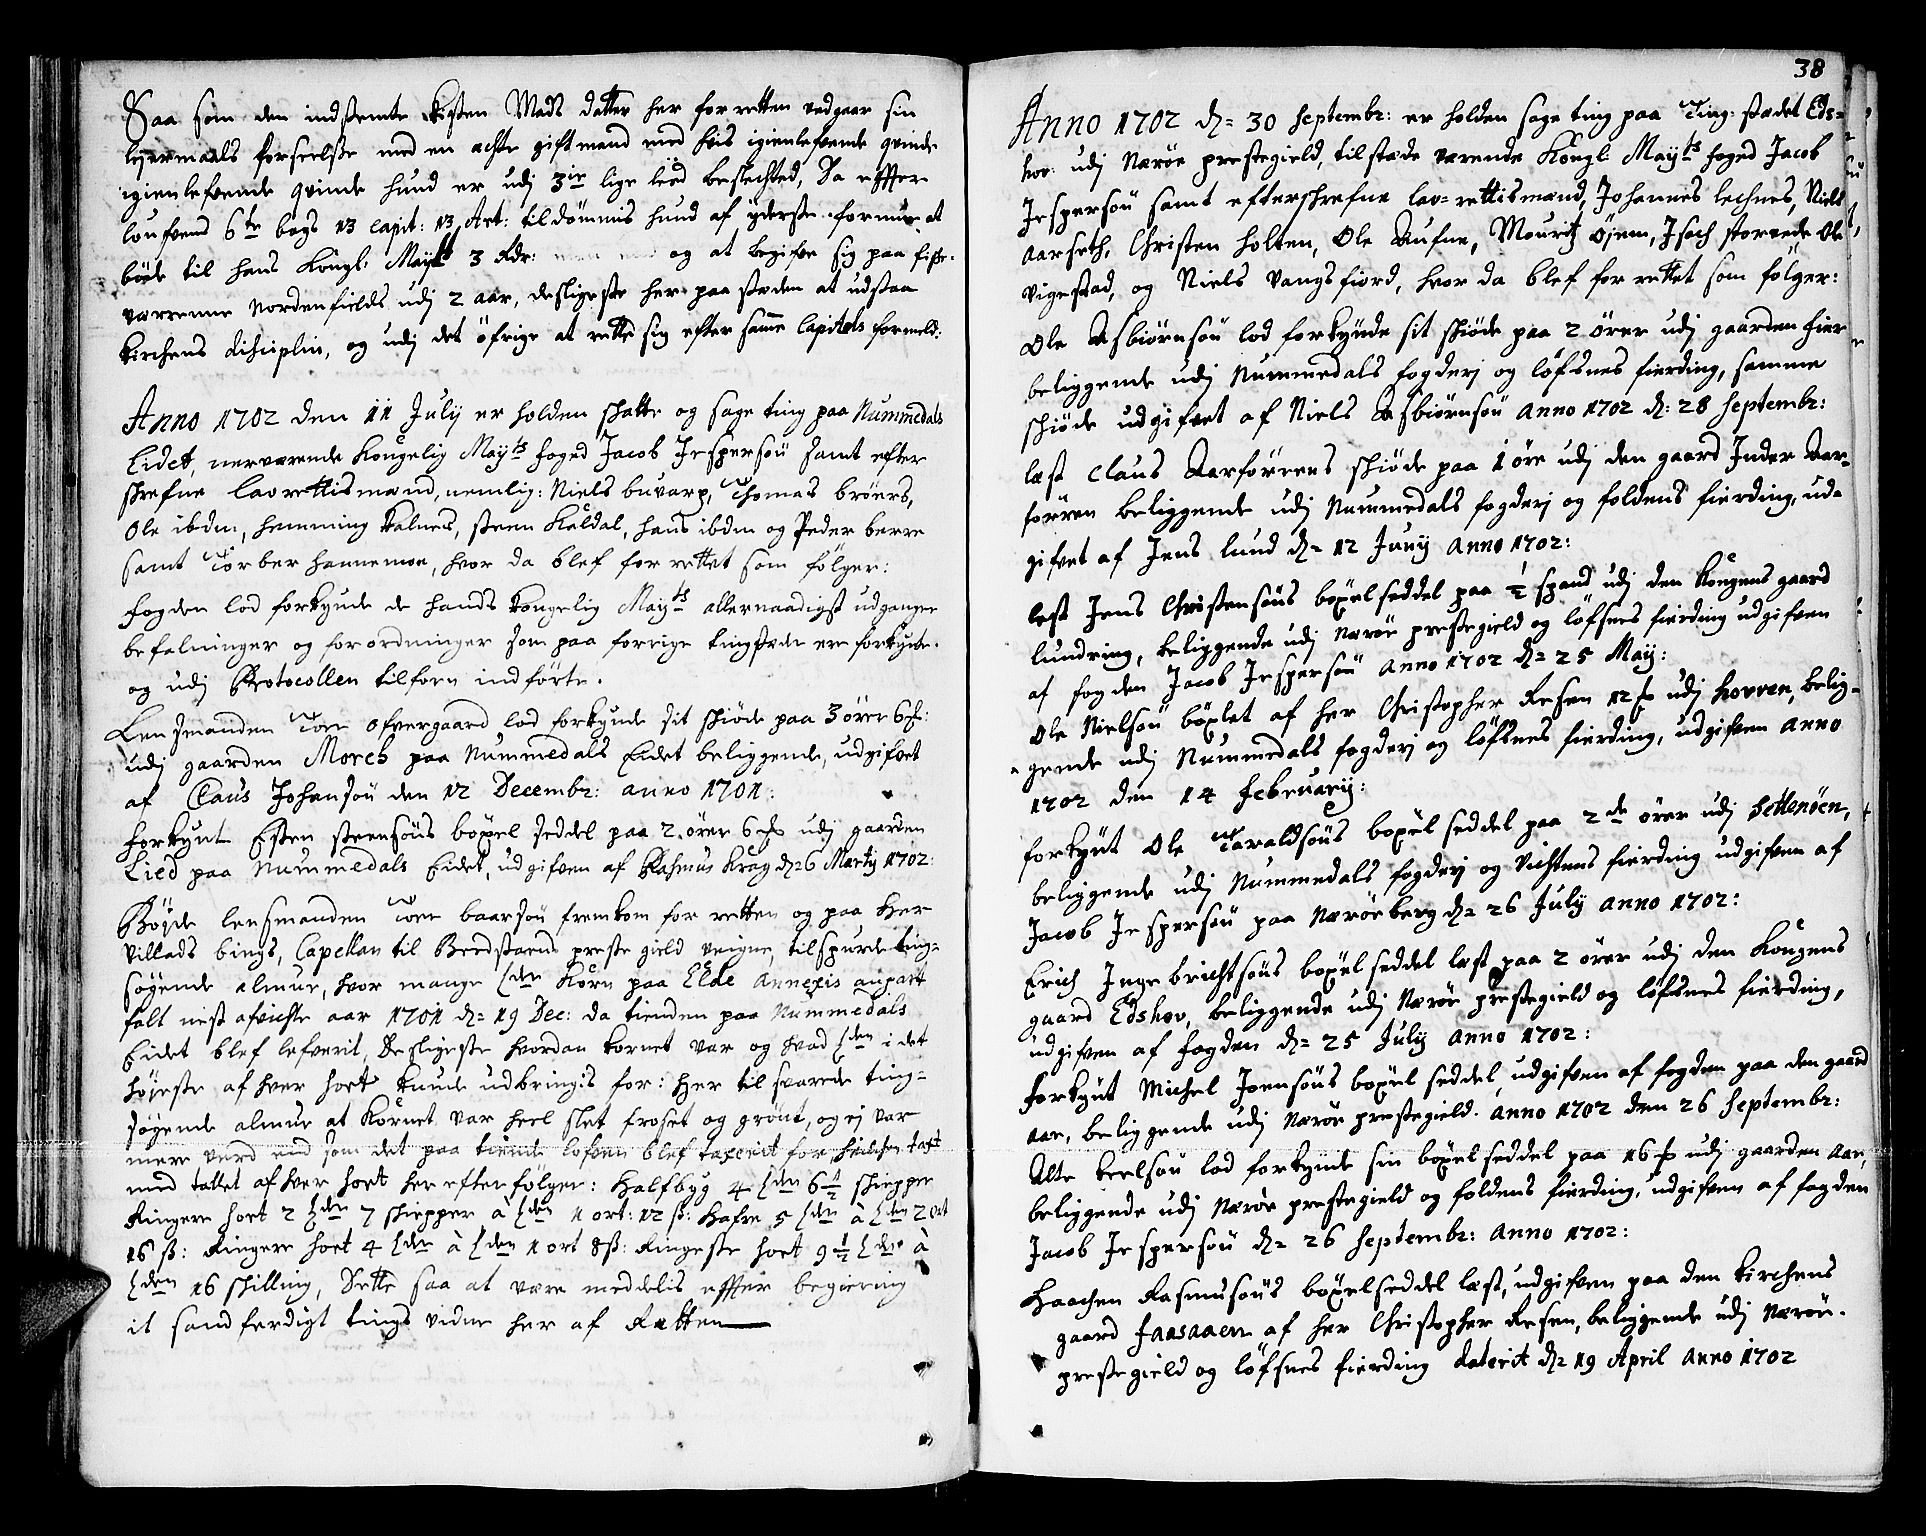 Saa som den indstemte Kisten Mads datter her for retten vedgaar sin
leiermaals forseelsse med en achte gift mand med hvis igienlefvende qvinde
igienlefvende qvinde hund er udj 3die lige leed beslechted, Da effter
loufvens 6te bogs 13 capit: 13 Art: tildömmis hund af yderste formue at
böde til hans Kongl: Mayts 3 Rdr: og at begifve sig paa fiske-
værrerne Nordenfields udj 2 aar, desligeste her paa stæden at udstaa
Kirchens disciplin, og udj det öfrige at rette sig efter samme Capitels formeld:
Anno 1702 den 11 July er holden skatte og sage ting paa Nummedals
Eidet, nerværende Kongelig Mayts foged Jacob Jespersön samt efter
skrefne lavrettismænd, nemlig: Niels buvarp, Thomas bröers,
Ole ibdm:, hemming Kalnes, steen Kaldal, hans ibdm og Peder berre
samt Torber hannemoe, hvor da blef for rettet som fölger:
fogden lod forkynde de hands kongelig Mayts allernaadigst udgangne
befalninger og forordninger som paa forrige tingstæde ere forkynte.
og udj Protocollen tilforn indförte.
Lensmanden Tore ofvergaard lod forkynde sit skiöde paa 3 örer 6 :
udj gaarden Morch paa Nummedals Eidet beliggende, udgifvet
af Claus Johansön den 12 Decembr: anno 1701:
forkynt Esten steensöns böxel seddel paa 2 örer 6 udj gaarden
Lied paa Nummedals Eidet, udgifven af Rasmus Krag d= 6 Marty 1702:
Böyde lensmanden Tore baarsön fremkom for retten og paa Her
Villads bings, Capellan til Beedstaens preste gield veigne, tilspurde ting-
söyende almue, hvor mange tder Korn paa Elde Annexis anpart
falt nest afvichte aar 1701 d= 19 Dec: da tienden paa Nummedals
Eidet blef lefverit, Desligeste hvordan kornet var og hvad tden i det
höyeste af hver sort kunde udbringis for: Her til svarede ting-
söyende almue at Kornet var heel slet froset og grönt, og ej var
mere verd end som det paa tiende lofven blef taxerit for hvilchen taxt
med tallet af hver sort her efterfölger: Halfbyg 4 tder 6½ skiepper
Ringere sort 2 tder 7 skiepper à tden 1 ort: 12 ß: Hafre 5 tder à tden 2 ort
16 ß: Ringere sort 4 tder à tden 1 ort 8 ß: Ringeste sort 9½ tde à
tden 16 skilling, Dette saa at være meddelis effter begiering
it sandferdigt tings vidne her af Retten
38
Anno 1702 d= 30 Septembr: er holden sage ting paa Ting: stædet Eds-
hov: udj Nærøe prestegield, tilstæde værende Kongl: Mayts foged Jacob
Jespersön samt efterskrefne lav-rettismænd, Johannes lechnes, Niels
Aarseth, Christen holten, Ole Aufne, Mouritz Öjem, Isach storvede Ole
Vigestad, og Niels Vangsfiord, hvor da blef for rettet som fölger:
Ole Asbiörnsön lod forkynde sit skiöde paa 2 örer udj gaarden fier
beliggende udj Nummedals fogderj og löfsnes fierding, samme
skiöde udgifvet af Niels Asbiörnsön Anno 1702 d: 28 Septembr:
læst Claus Aarförrens skiöde paa 1 öre udj den gaard Inder Aar-
förren beliggende udj Nummedals fogderj og foldens fierding, ud-
gifvet af Jens lund d= 12 Juny Anno 1702:
lest Jens Christensöns böxelseddel paa ½ spand udj den Kongens gaard
lundring, beliggende udj Nærøe prestegield og löfsnes fierding udgifven
af fogden Jacob Jespersön Anno 1702 d= 25 May:
Ole Nielsön böxlet af her Christopher Resen 12 udj hovven, belig-
gende udj Nummedals fogderj og löfsnes fierding, udgifven anno
1702 den 14 february:
forkynt Ole Taraldsöns böxelseddel paa 2de örer udj Settenöen,
beliggende udj Nummedals fogderj og Vichtens fierding udgifven af
Jacob Jespersön paa Nærøeberg d= 26 July anno 1702:
Erich Ingebrichtsöns böxelseddel læst paa 2 örer udj den Kongens
gaard Edshov, beliggende udj Nærøe prestegield og löfsnes fierding,
udgifven af fogden d= 25 July Anno 1702:
forkynt Michel Joensöns böxel seddel udgifven af fogden paa den gaard
Aae, beliggende udj Nærøe prestegield. Anno 1702 den 26 Septembr:
Atte Keelsön lod forkynde sin böxelseddel paa 16 udj gaarden Aae,
beliggende udj Nærøe prestegield og foldens fierding, udgifven af fogden
Jacob Jespersön d= 26 Septembr: Anno 1702:
Haachen Rasmusöns böxelseddel læst, udgifven paa den Kirchens
gaard faasaaen af her Christopher Resen, beliggende udj Nærøe-
prestegield og löfsnes fierding daterit d= 19 April Anno 1702